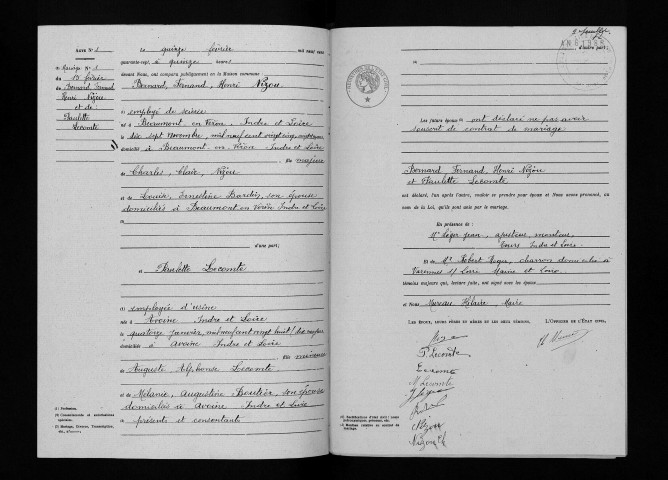 ACTE N° 1
Mariage N° 1
du 15 février
de Bernard, Fernand
Henri Nizou
et de
Paulette
Lecomte
Le quinze février mil neuf cent
quarante-sept, à quinze heures
devant Nous, ont comparu publiquement en la Maison commune :
Bernard, Fernand, Henri Nizou
(1) employé de
né à Beaumont en Véron, Indre et Loire
le dix sept Novembre, mil neuf cent vingt
domicilié à Beaumont en Véron Indre et Loire
fils majeur
de Charles, Nizou
et de Louise, Ernestine Bardin, son épouse
domiciliés à Beaumont en Véron Indre et Loire
d'une part ;
et Paulette Lecomte
(1) employée d'usine
née à Avoine Indre et Loire
le quatorze janvier, mil neuf cent vingt huit
domiciliée à Avoine Indre et Loire
fille mineure
de Auguste Alphonse Lecomte
et de Mélanie, Augustine Boutier, son épouse
domiciliés à Avoine Indre et Loire
(2) présents et consentants
(1) Profession.
(2) Consentements et autorisations
d'autre part ;
Les futurs époux ont déclaré ne pas avoir
souscrit de contrat de mariage
Bernard Fernand, Henri Nizou
et Paulette Lecomte
ont déclaré, l'un après l'autre, vouloir se prendre pour époux et Nous avons prononcé, au
nom de la Loi, qu'ils sont unis par le mariage.
En présence de :
Mr Léger Jean, ajusteur monteur,
Tours Indre et Loire
Et de Mr Robert Roger, charron domicilié à
Varennes s/ Loire Maine et Loire
témoins majeurs qui, lecture faite, ont signé avec les époux
et Nous Moreau Hilaire, Maire
LES ÉPOUX, LEURS PÈRES ET MÈRES ET LES DEUX TÉMOINS,
L'OFFICIER DE L'ÉTAT CIVIL,
Nizou
P. Lecomte
Lecomte
M Lecomte
Nizou
Nizou